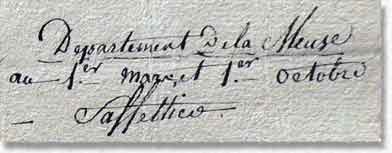 Departement Dela Meuse
au 1.er mars, et 1.er octobre